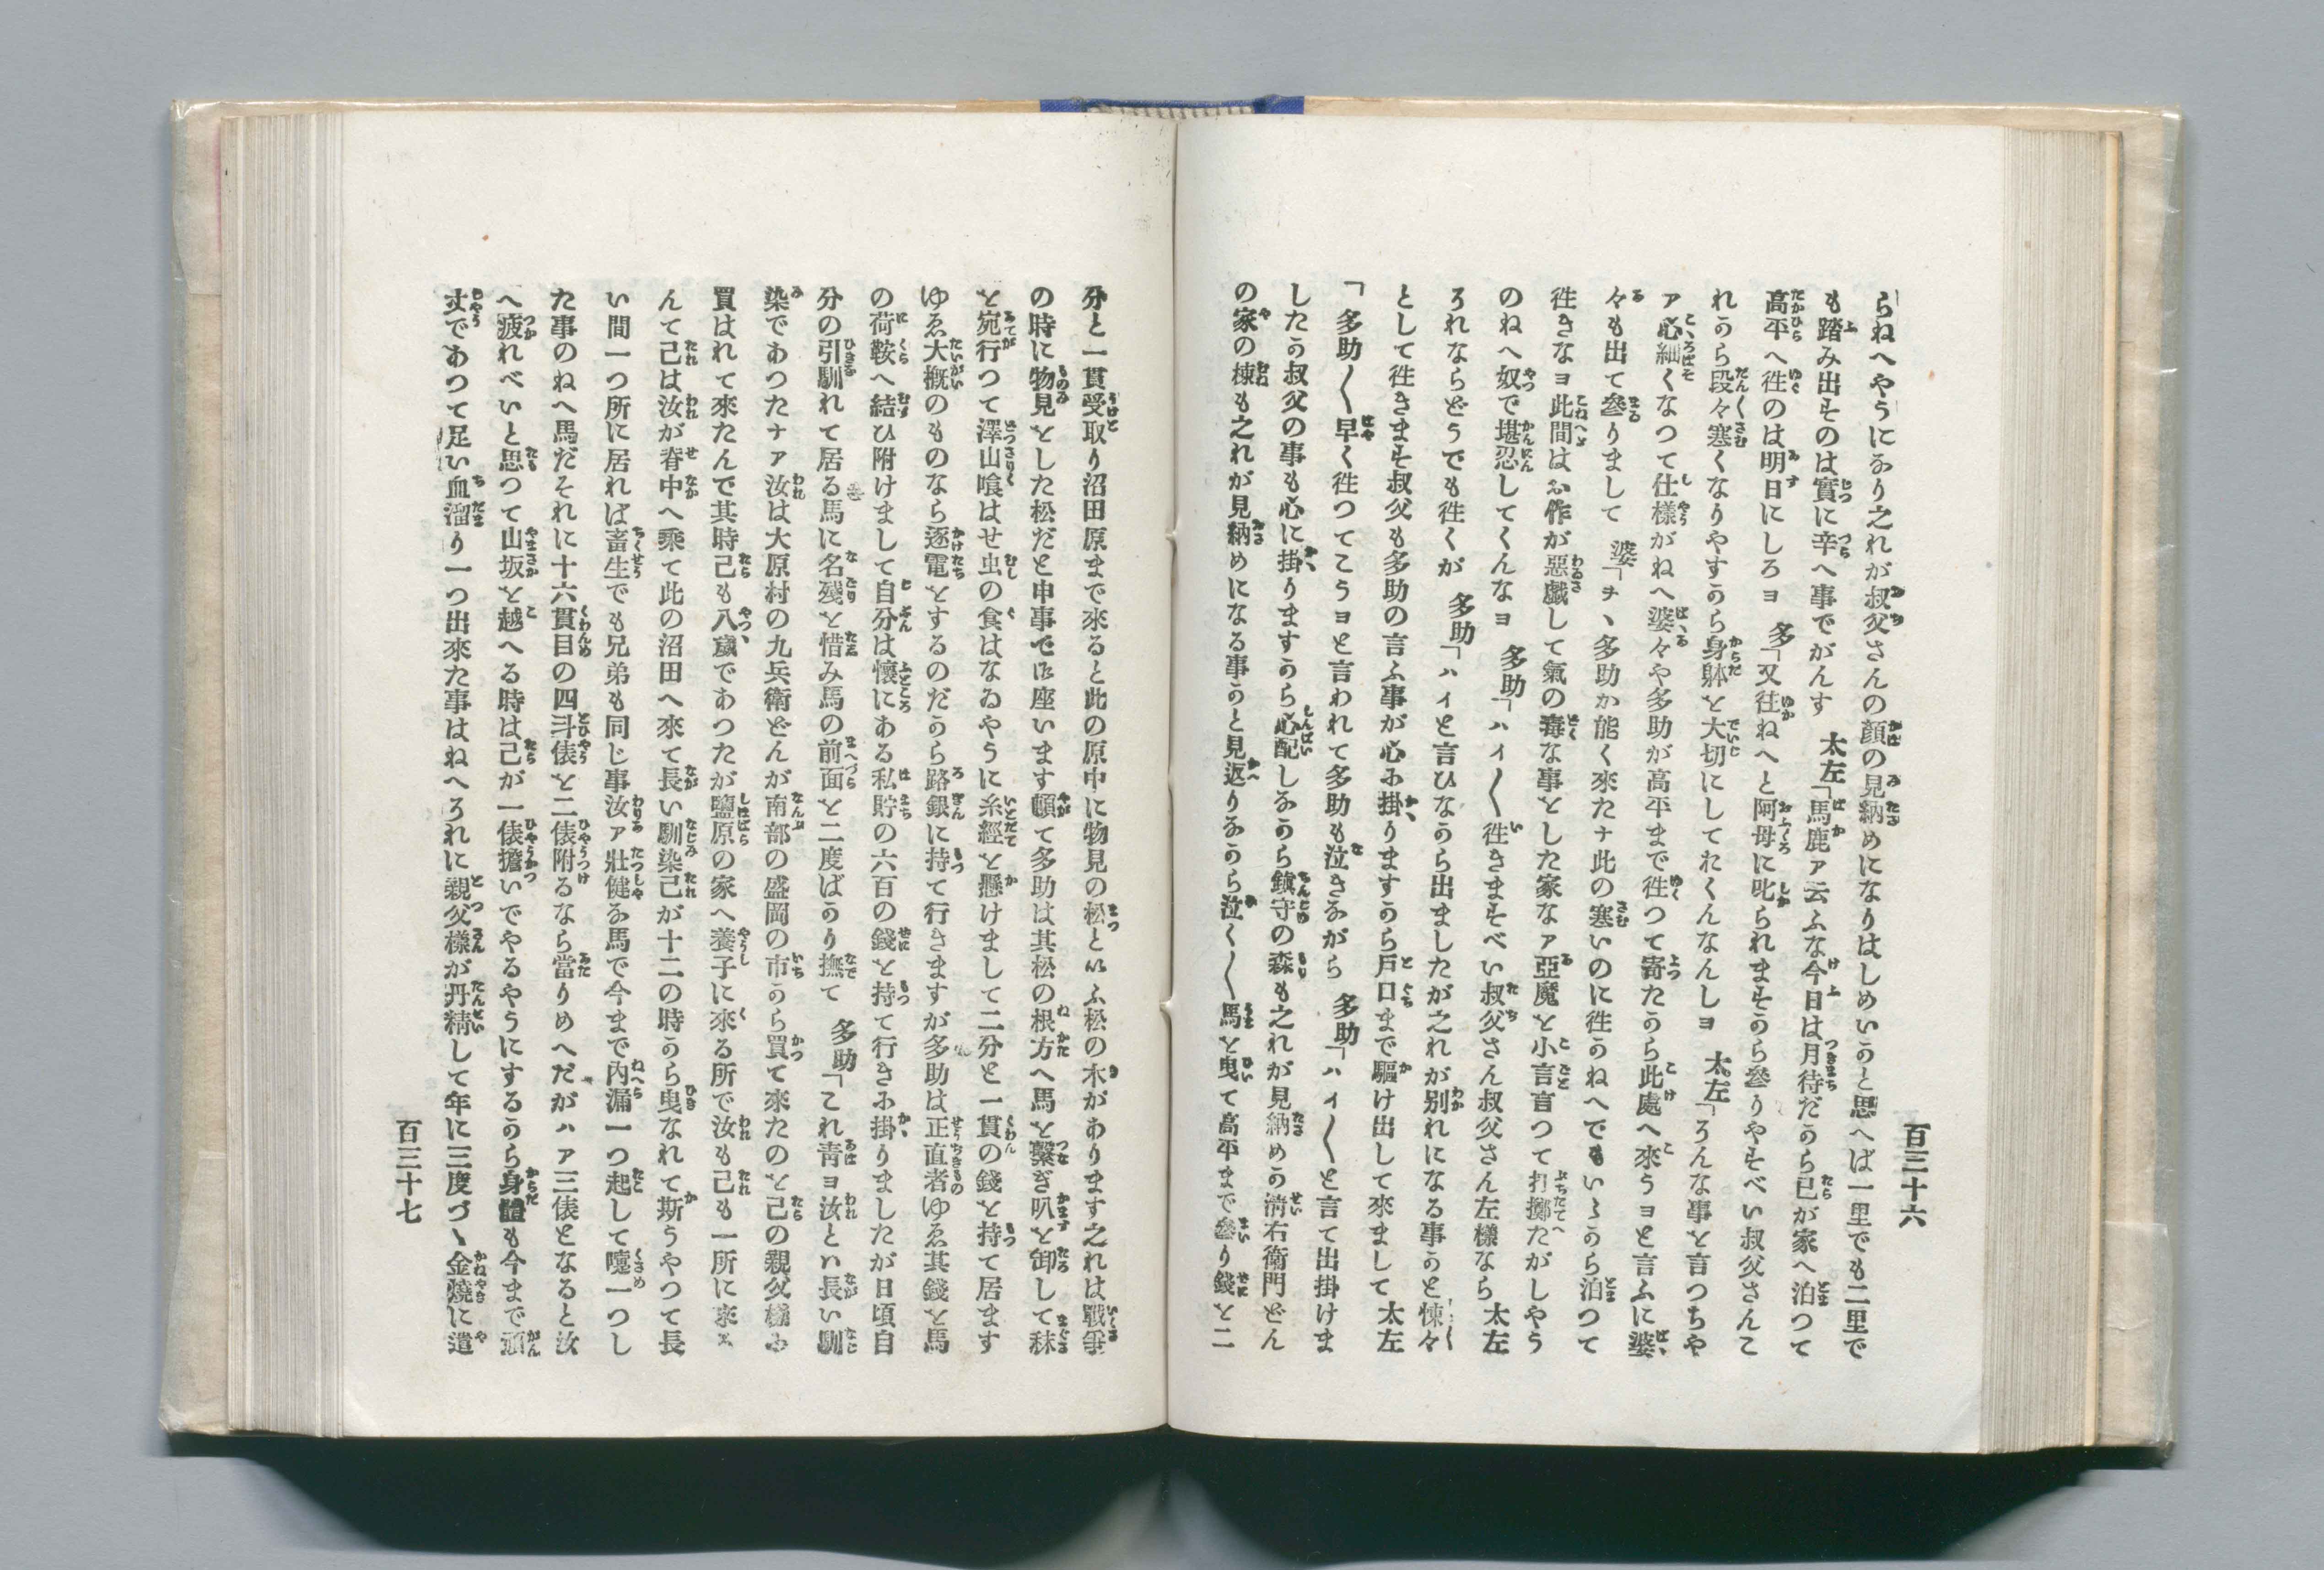 百三十六
らねへやうになり之れが叔父さんの顔の見納めになりはしめいかと思へば一里でも二里で
も踏み出すのは實に辛へ事でがんす　太左「馬鹿ァ云ふな今日は月待だから己が家へ泊つて
高平へ徃のは明日にしろヨ　多「又徃ねへと阿母に叱られますから參りやすべい叔父さんこ
れから段々寒くなりやすから身躰を大切にしてれくんなんしヨ　太左「そんな事を言つちや
ァ心細くなつて仕樣がねへ婆々や多助が高平まで徃つて寄たから此處へ來うヨと言ふに婆
々も出て參りまして　婆「ヲヽ多助か能く來たナ此の寒いのに徃かねへでもいゝから泊つて
徃きなヨ此間はお作が惡戯して氣の毒な事をした家なァ亞魔を小言言つて打擲たがしやう
のねへ奴で堪忍してくんなヨ　多助「ハイ〳〵徃きますべい叔父さん叔父さん左樣なら　太左
「そ
れならどうでも徃くが　多助「ハイと言ひながら出ましたが之れが別れになる事かと悚々
として徃きます叔父も多助の言ふ事が心に掛りますから戸口まで驅け出して來まして　太左
「多助〳〵早く徃つてこうヨと言われて多助も泣きながら　多助「ハイ〳〵と言て出掛けま
したか叔父の事も心に掛りますから心配しながら鎭守の森も之れが見納めか淸右衛門どん
の家の棟も之れが見納めになる事かと見返りながら泣く〳〵馬を曳て高平まで參り錢を二
分と一貫受取り沼田原まで來ると此の原中に物見の松といふ松の木があります之れは戰爭
の時に物見をした松だと申事で御座います頓て多助は其松の根方へ馬を繋ぎ叺を卸して秣
を宛行つて澤山喰はせ虫の食はなゐやうに糸經を懸けまして二分と一貫の錢を持て居ます
ゆゑ大槪のものなら逐電をするのだから路銀に持て行きますが多助は正直者ゆゑ其錢を馬
の荷鞍へ結ひ附けまして自分は懷にある私貯の六百の錢を持て行きに掛りましたが日頃自
分の引馴れて居る馬に名殘を惜み馬の前面を二度ばかり撫て　多助「これ靑ヨ汝とハ長い馴
染であつたナァ汝は大原村の九兵衛どんが南部の盛岡の市から買て來たのを己の親父樣に
買はれて來たんで其時己も八歳であつたが鹽原の家へ養子に來る所で汝も己も一所に來
んて己は汝が脊中へ乘て此の沼田へ來て長い馴染己が十二の時から曳なれて斯うやつて長
い間一つ所に居れば畜生でも兄弟も同じ事汝ァ壯健な馬で今まで內漏一つ起して嚔一つし
た事のねへ馬だそれに十六貫目の四斗俵を二俵附るなら當りめへだがハァ三俵となると汝
へ疲れべいと思つて山坂を越へる時は己が一俵擔いでやるやうにするから身體も今まで頑
丈であつて足い血溜り一つ出來た事はねへそれに親父樣が丹精して年に三度づゝ金燒に遣
百三十七